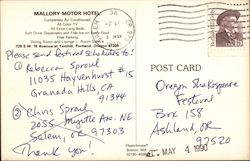 MALLORY MOTOR HOTEL
Completely Air Conditioned
All Color TV
All Extra Long Beds
Soft Drink Dispensers and Free Ice on every Floor
Free Parking
Dining Room and Lounge - Room Service
729 S.W. 15 Avenue at Yamhill, Portland, Oregon 97205
Please send festival schedules to:
① Rebecca Sproul
11035 Hayvenhurst #15
Granada Hills, CA
91344
② Chris Sproul
2055 Myrtle Ave. NE
Salem, OR 97303
Thank you!
POST CARD
Oregon Shakespeare
Festival
Box 158
Ashland, OR
97520
MAY 4 1990